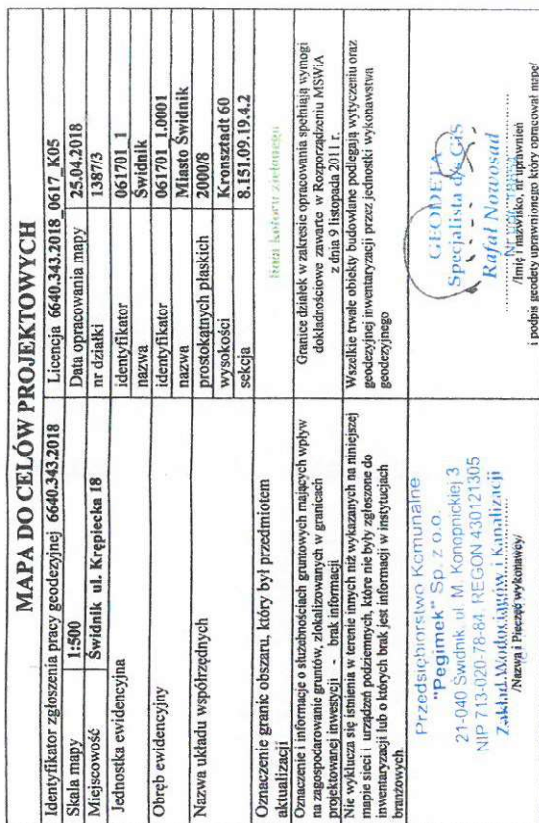 MAPA DO CELÓW PROJEKTOWYCH
Identyfikator zgłoszenia pracy geodezyjnej 6640.343.2018 Licencja 6640.343.2018_0617_K05
Skala mapy 1:500 Data opracowania mapy 25.04.2018
Miejscowość Świdnik ul. Krępiecka 18 nr działki 1387/3
Jednostka ewidencyjna identyfikator 061701_1
nazwa Świdnik
Obręb ewidencyjny identyfikator 061701_1.0001
nazwa Miasto Świdnik
Nazwa układu współrzędnych prostokątnych płaskich 2000/8
wysokości Kronsztadt 60
sekcja 8.151.09.19.4.2
Oznaczenie granic obszaru, który był przedmiotem
aktualizacji
linia koloru zielonego
Oznaczenie i informacje o służebnościach gruntowych mających wpływ
na zagospodarowanie gruntów, zlokalizowanych w granicach
projektowanej inwestycji - brak informacji
Granice działek w zakresie opracowania spełniają wymogi
dokładnościowe zawarte w Rozporządzeniu MSWiA
z dnia 9 listopada 2011 r.
Nie wyklucza się istnienia w terenie innych niż wykazanych na niniejszej
mapie sieci i urządzeń podziemnych, które nie były zgłoszone do
inwentaryzacji lub o których brak jest informacji w instytucjach
branżowych
Wszelkie trwałe obiekty budowlane podlegają wytyczeniu oraz
geodezyjnej inwentaryzacji przez jednostki wykonawstwa
geodezyjnego
Przedsiębiorstwo Komunalne
"Pegimek" Sp. z o.o.
21-040 Świdnik, ul. M. Konopnickiej 3
NIP 713-020-78-84, REGON 430121305
Zakład Wodociągów i Kanalizacji
/Nazwa i Pieczęć wykonawcy/
GEODETA
Specjalista ds. GIS
Rafał Nowosad
/Imię i nazwisko, nr uprawnień
i podpis geodety uprawnionego który opracował mapę/